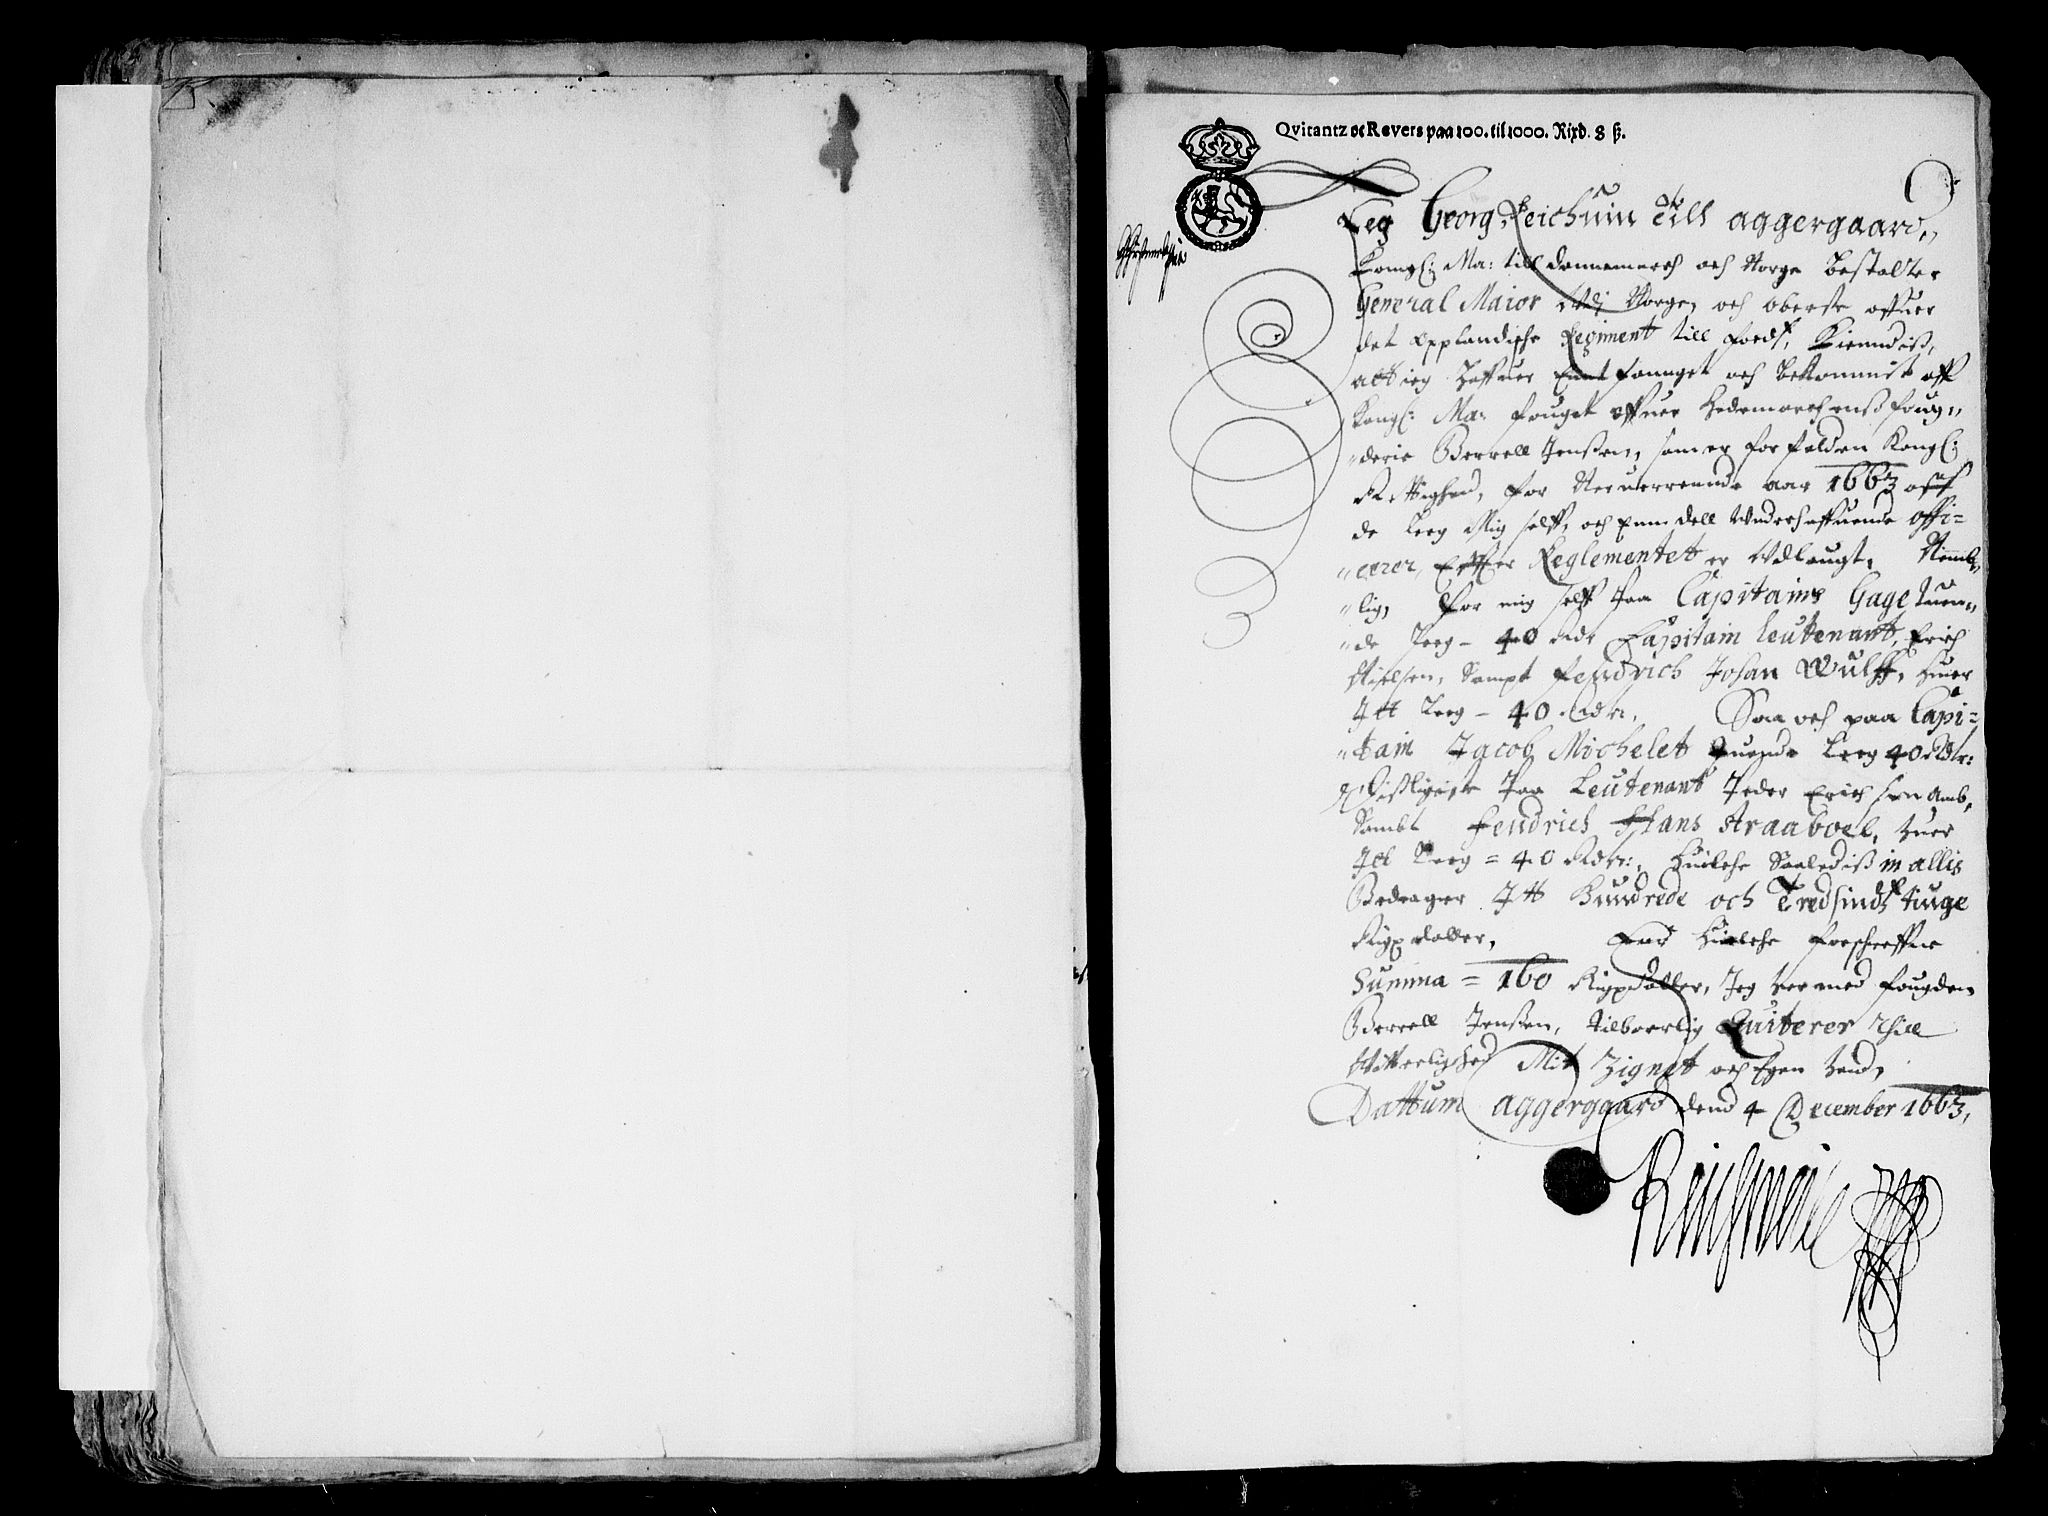 Qvitantz oc Revers paa 100. til 1000. Rixd. 8 ß.
Jeg Georg Reichuin Till aggergaard,,
Kongl: Ma: till Dannemarch och Norge Bestalter
General Maior udj Norge, och oberste offuer
det opplandische Regiment till foeds, Kiendis,
att ieg haffuer Entfanget och bekommit aff
Kongl: Ma: fouget offuer Hedemarchens foug,,
,,derie Berrell Jenßen, som er for falden Kongl:
Rettighed, for Neruerrende aar 1663 aff
de Leeg Mig self, och Enn dell Underhaffuende offi=
,,cerer, Effter Reglementet er Udlaugt, Nemb,,
,,lig, for mig self paa Capitains Gage tuen,,
,,de Leeg - 40 Rdr Capitain leutenant, Erich
Nielsen, Sampt fendrich Johan Wulff, huer
Itt Leeg - 40 Rdr, Saa och paa Capi=
,,tain Jacob Michelet Tuende Leeg 40 Rdlr:
Disligiste paa Leutenant Peder Erichsen Amb,
Sambt fendrich Hans Straaboel, huer
Itt Leeg = 40 Rdr:, huilche Saaledis in allis
Bedrager Itt Hundrede och Tredsinds tiuge
Rixdaller, For huilche forschreffne
Summa = 160 Rixdaller, Jeg hermed fougden
Berrell Jenßen, tilboerlig Quiterer Thill
Witterlighed Mit Zignet och Egen haand,
Dattum aggergaard dend 4 December 1663,